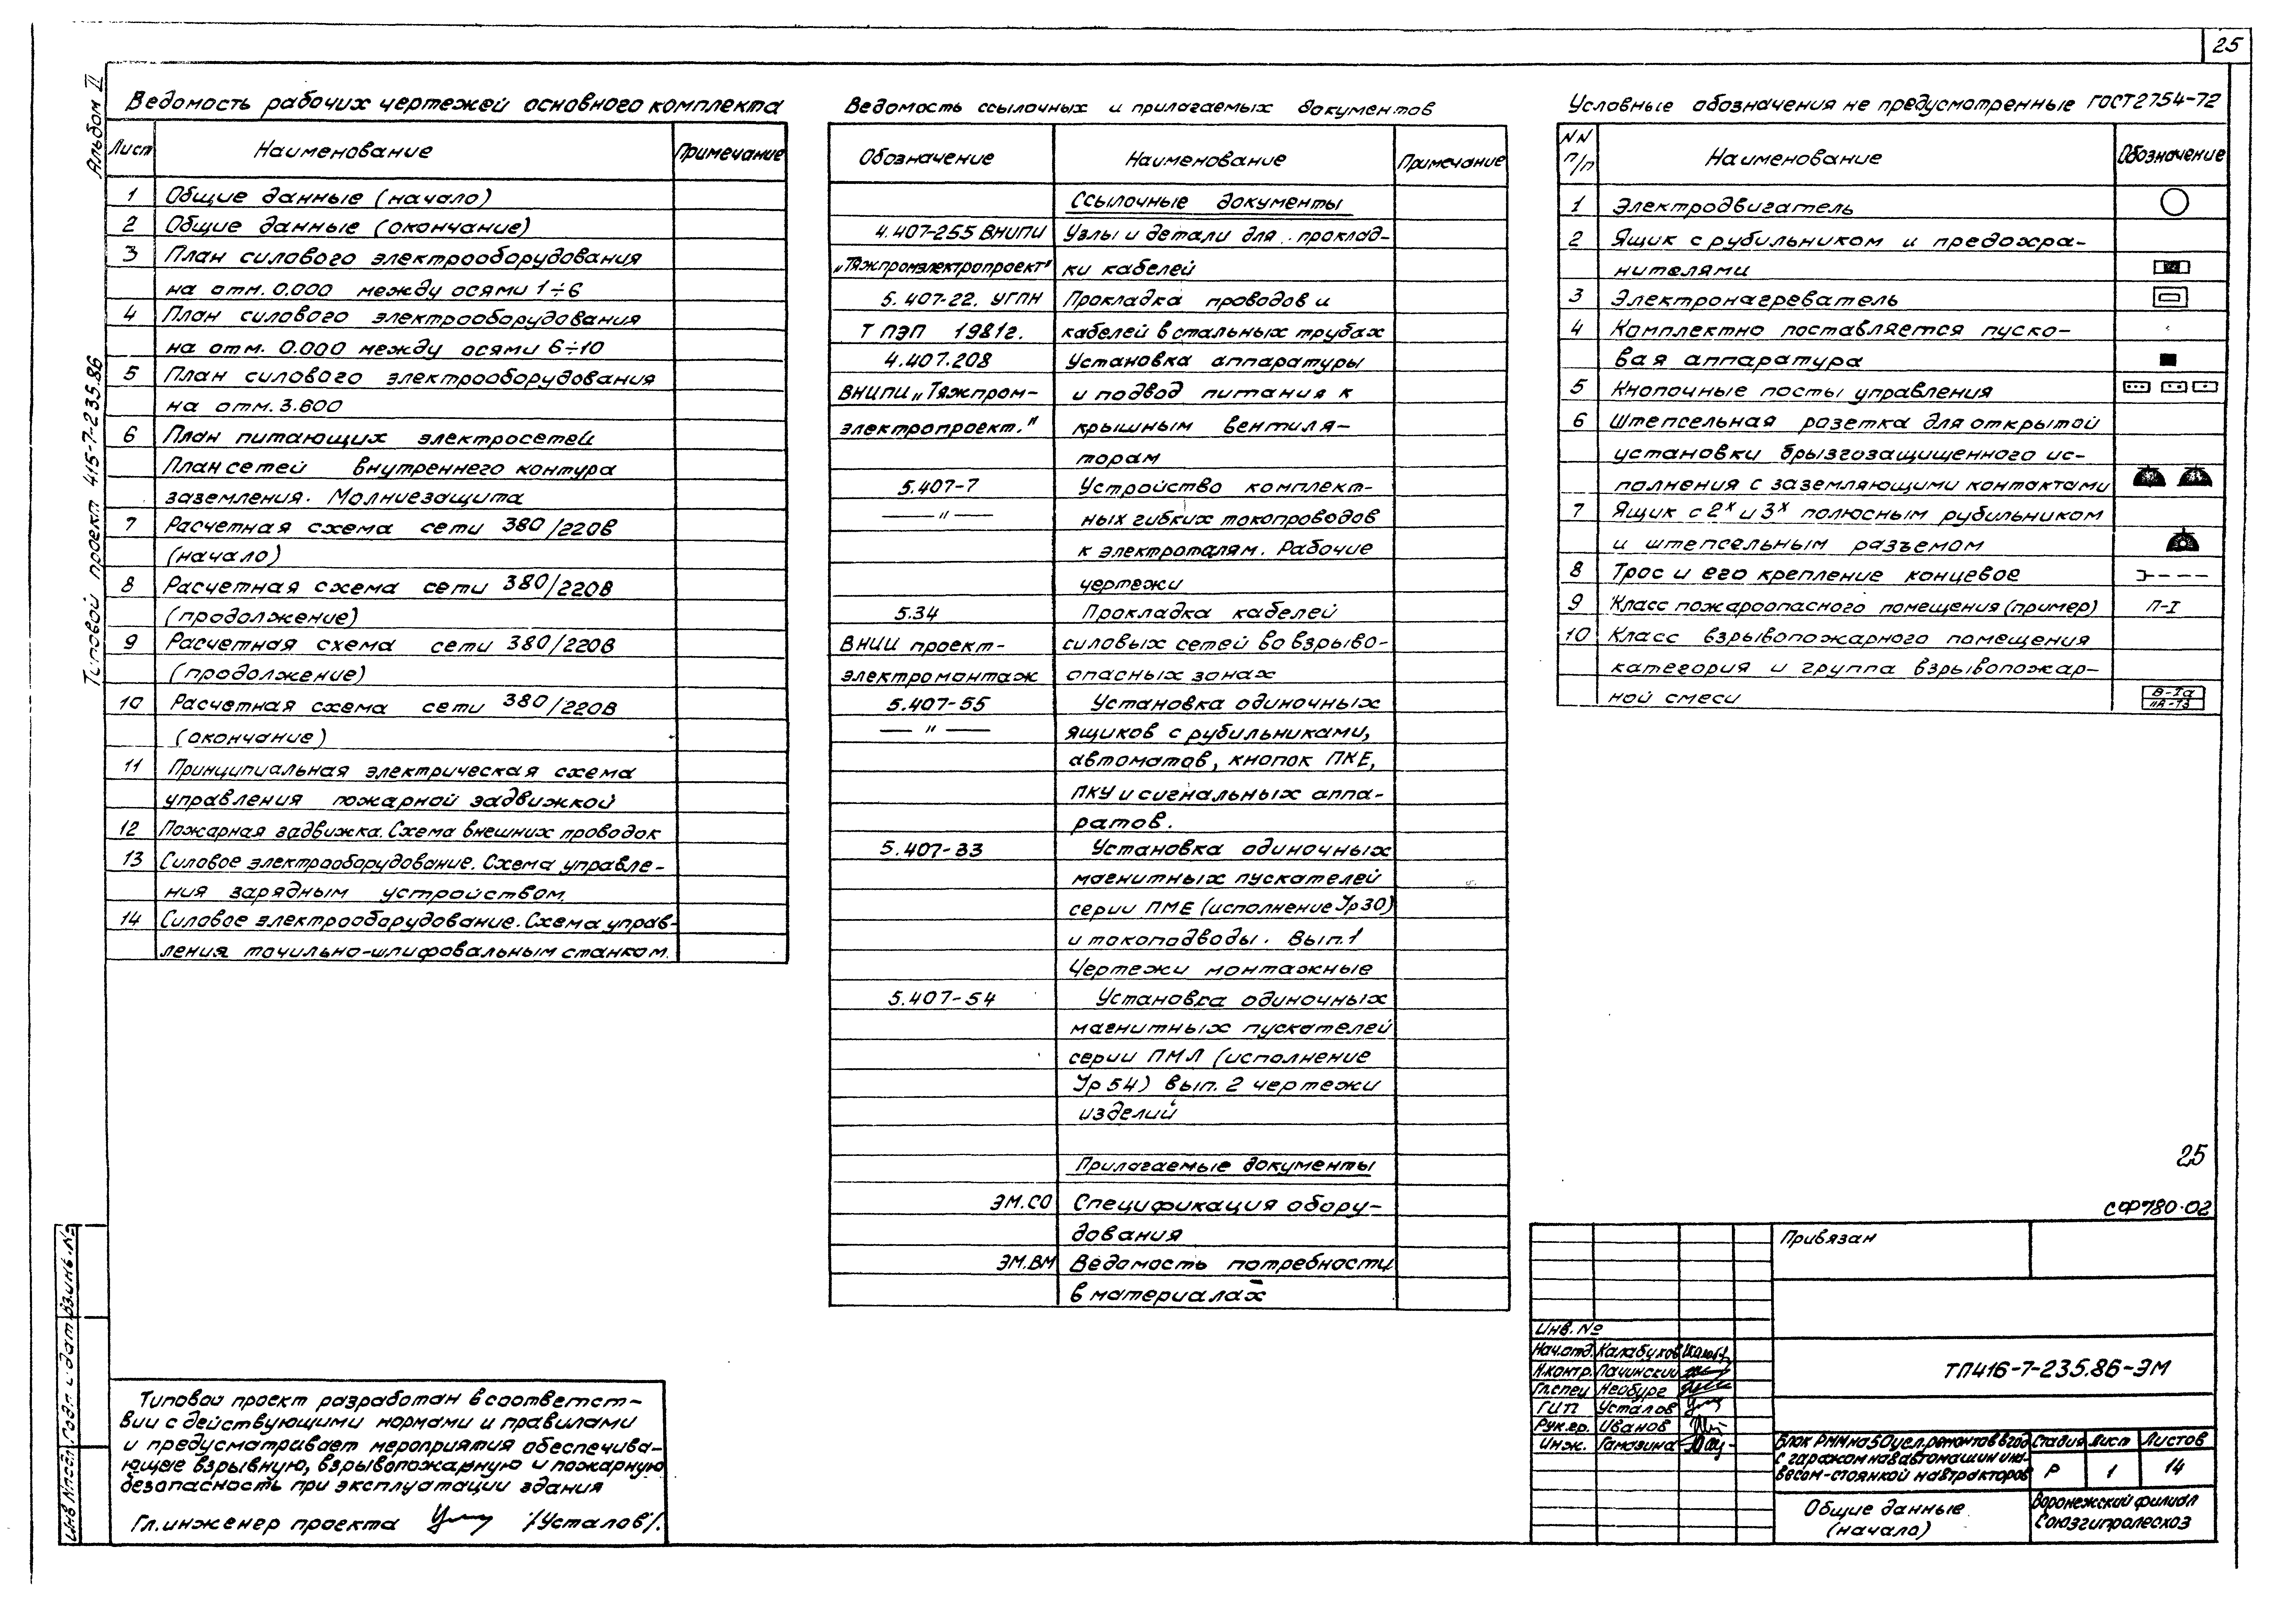 25
Альбом II
Типовой проект 415-7-235.86
Ведомость рабочих чертежей основного комплекта
Лист Наименование Примечание
1 Общие данные (начало)
2 Общие данные (окончание)
3 План силового электрооборудования
на отм. 0.000 между осями 1÷6
4 План силового электрооборудования
на отм. 0.000 между осями 6÷10
5 План силового электрооборудования
на отм. 3.600
6 План питающих электросетей
План сетей внутреннего контура
заземления. Молниезащита
7 Расчетная схема сети 380/220В
(начало)
8 Расчетная схема сети 380/220В
(продолжение)
9 Расчетная схема сети 380/220В
(продолжение)
10 Расчетная схема сети 380/220В
(окончание)
11 Принципиальная электрическая схема
управления пожарной задвижкой
12 Пожарная задвижка. Схема внешних проводок
13 Силовое электрооборудование. Схема управле-
ния зарядным устройством.
14 Силовое электрооборудование. Схема управ-
ления точильно-шлифовальным станком.
Ведомость ссылочных и прилагаемых документов
Обозначение Наименование Примечание
Ссылочные документы
4.407-255 ВНИПИ Узлы и детали для проклад-
„Тяжпромэлектропроект" ки кабелей
5.407-22. УГПН Прокладка проводов и
Т ПЭП 1981г. кабелей в стальных трубах
4.407.208 Установка аппаратуры
ВНИПИ „Тяжпром- и подвод питания к
электропроект." крышным вентиля-
торам
5.407-7 Устройство комплект-
— " — ных гибких токопроводов
к электроталям. Рабочие
чертежи
5.34 Прокладка кабелей
ВНИИ проект- силовых сетей во взрыво-
электромонтаж опасных зонах
5.407-55 Установка одиночных
— " — ящиков с рубильниками,
автоматов, кнопок ПКЕ,
ПКУ и сигнальных аппа-
ратов.
5.407-33 Установка одиночных
магнитных пускателей
серии ПМЕ (исполнение Ур30)
и токоподводы. Вып.1
Чертежи монтажные
5.407-54 Установка одиночных
магнитных пускателей
серии ПМЛ (исполнение
Ур54) вып. 2 чертежи
изделий
Прилагаемые документы
ЭМ.СО Спецификация обору-
дования
ЭМ.ВМ Ведомость потребности
в материалах
Условные обозначения не предусмотренные ГОСТ2754-72
NN п/п Наименование Обозначение
1 Электродвигатель
2 Ящик с рубильником и предохра-
нителями
3 Электронагреватель
4 Комплектно поставляется пуско-
вая аппаратура
5 Кнопочные посты управления
6 Штепсельная розетка для открытой
установки брызгозащищенного ис-
полнения с заземляющими контактами
7 Ящик с 2х и 3х полюсным рубильником
и штепсельным разъемом
8 Трос и его крепление концевое
9 Класс пожароопасного помещения (пример) П-I
10 Класс взрывопожарного помещения
категория и группа взрывопожар-
ной смеси В-Iа
IIА-Т3
25
СФ780-02
Привязан
Инв. №
Нач.отд. Калабухов
Н.контр. Пачинский
Гл.спец Нейбург
ГИП Усталов
Рук.гр. Иванов
Инж. Гамазина
ТП416-7-235.86-ЭМ
Блок РММ на 50 усл. ремонтов в год
с гаражом на автомашин и на-
весом-стоянкой на тракторов
Стадия Лист Листов
Р 1 14
Общие данные
(начало)
Воронежский филиал
Союзгипролесхоз
Типовой проект разработан в соответст-
вии с действующими нормами и правилами
и предусматривает мероприятия обеспечива-
ющие взрывную, взрывопожарную и пожарную
безопасность при эксплуатации здания
Гл. инженер проекта /Усталов/.
Инв № подл Подп. и дата Вз.инв.№